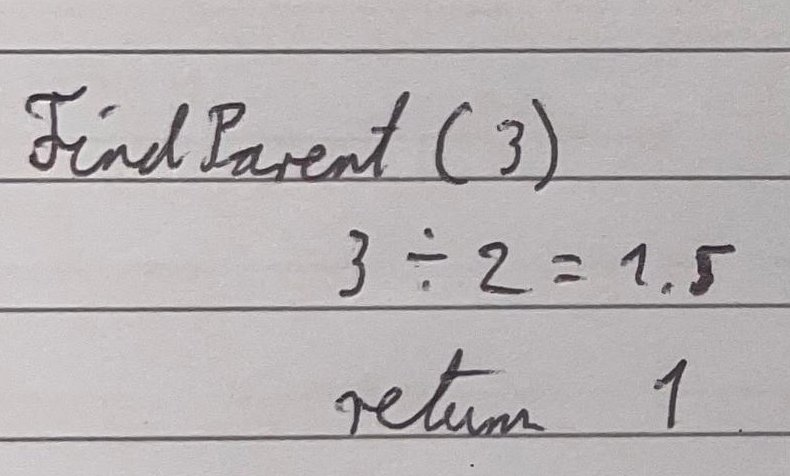 FindParent (3)
3 ÷ 2 = 1.5
return 1